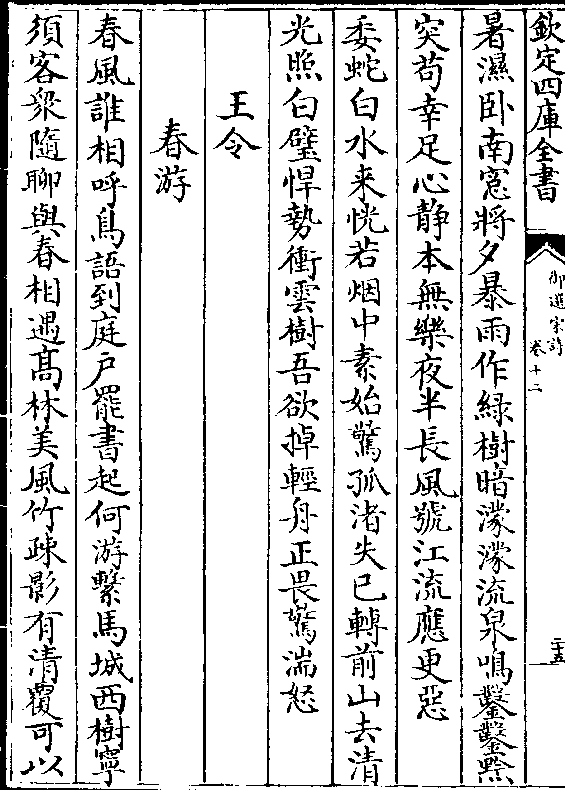 欽定四庫全書
御選宋詩
卷十二
二十五
暑濕卧南窓將夕暴雨作緑樹暗濛濛流泉鳴鑿鑿黙
突苟幸足心静本無樂夜半長風號江流應更惡
委蛇白水来恍若烟中素始驚孤渚失已轉前山去清
光照白璧悍勢衝雲樹吾欲掉輕舟正畏驚湍怒
王令
春游
春風誰相呼鳥語到庭戶罷書起何游繫馬城西樹寧
須客衆隨聊與春相遇髙林美風竹疎影有清覆可以